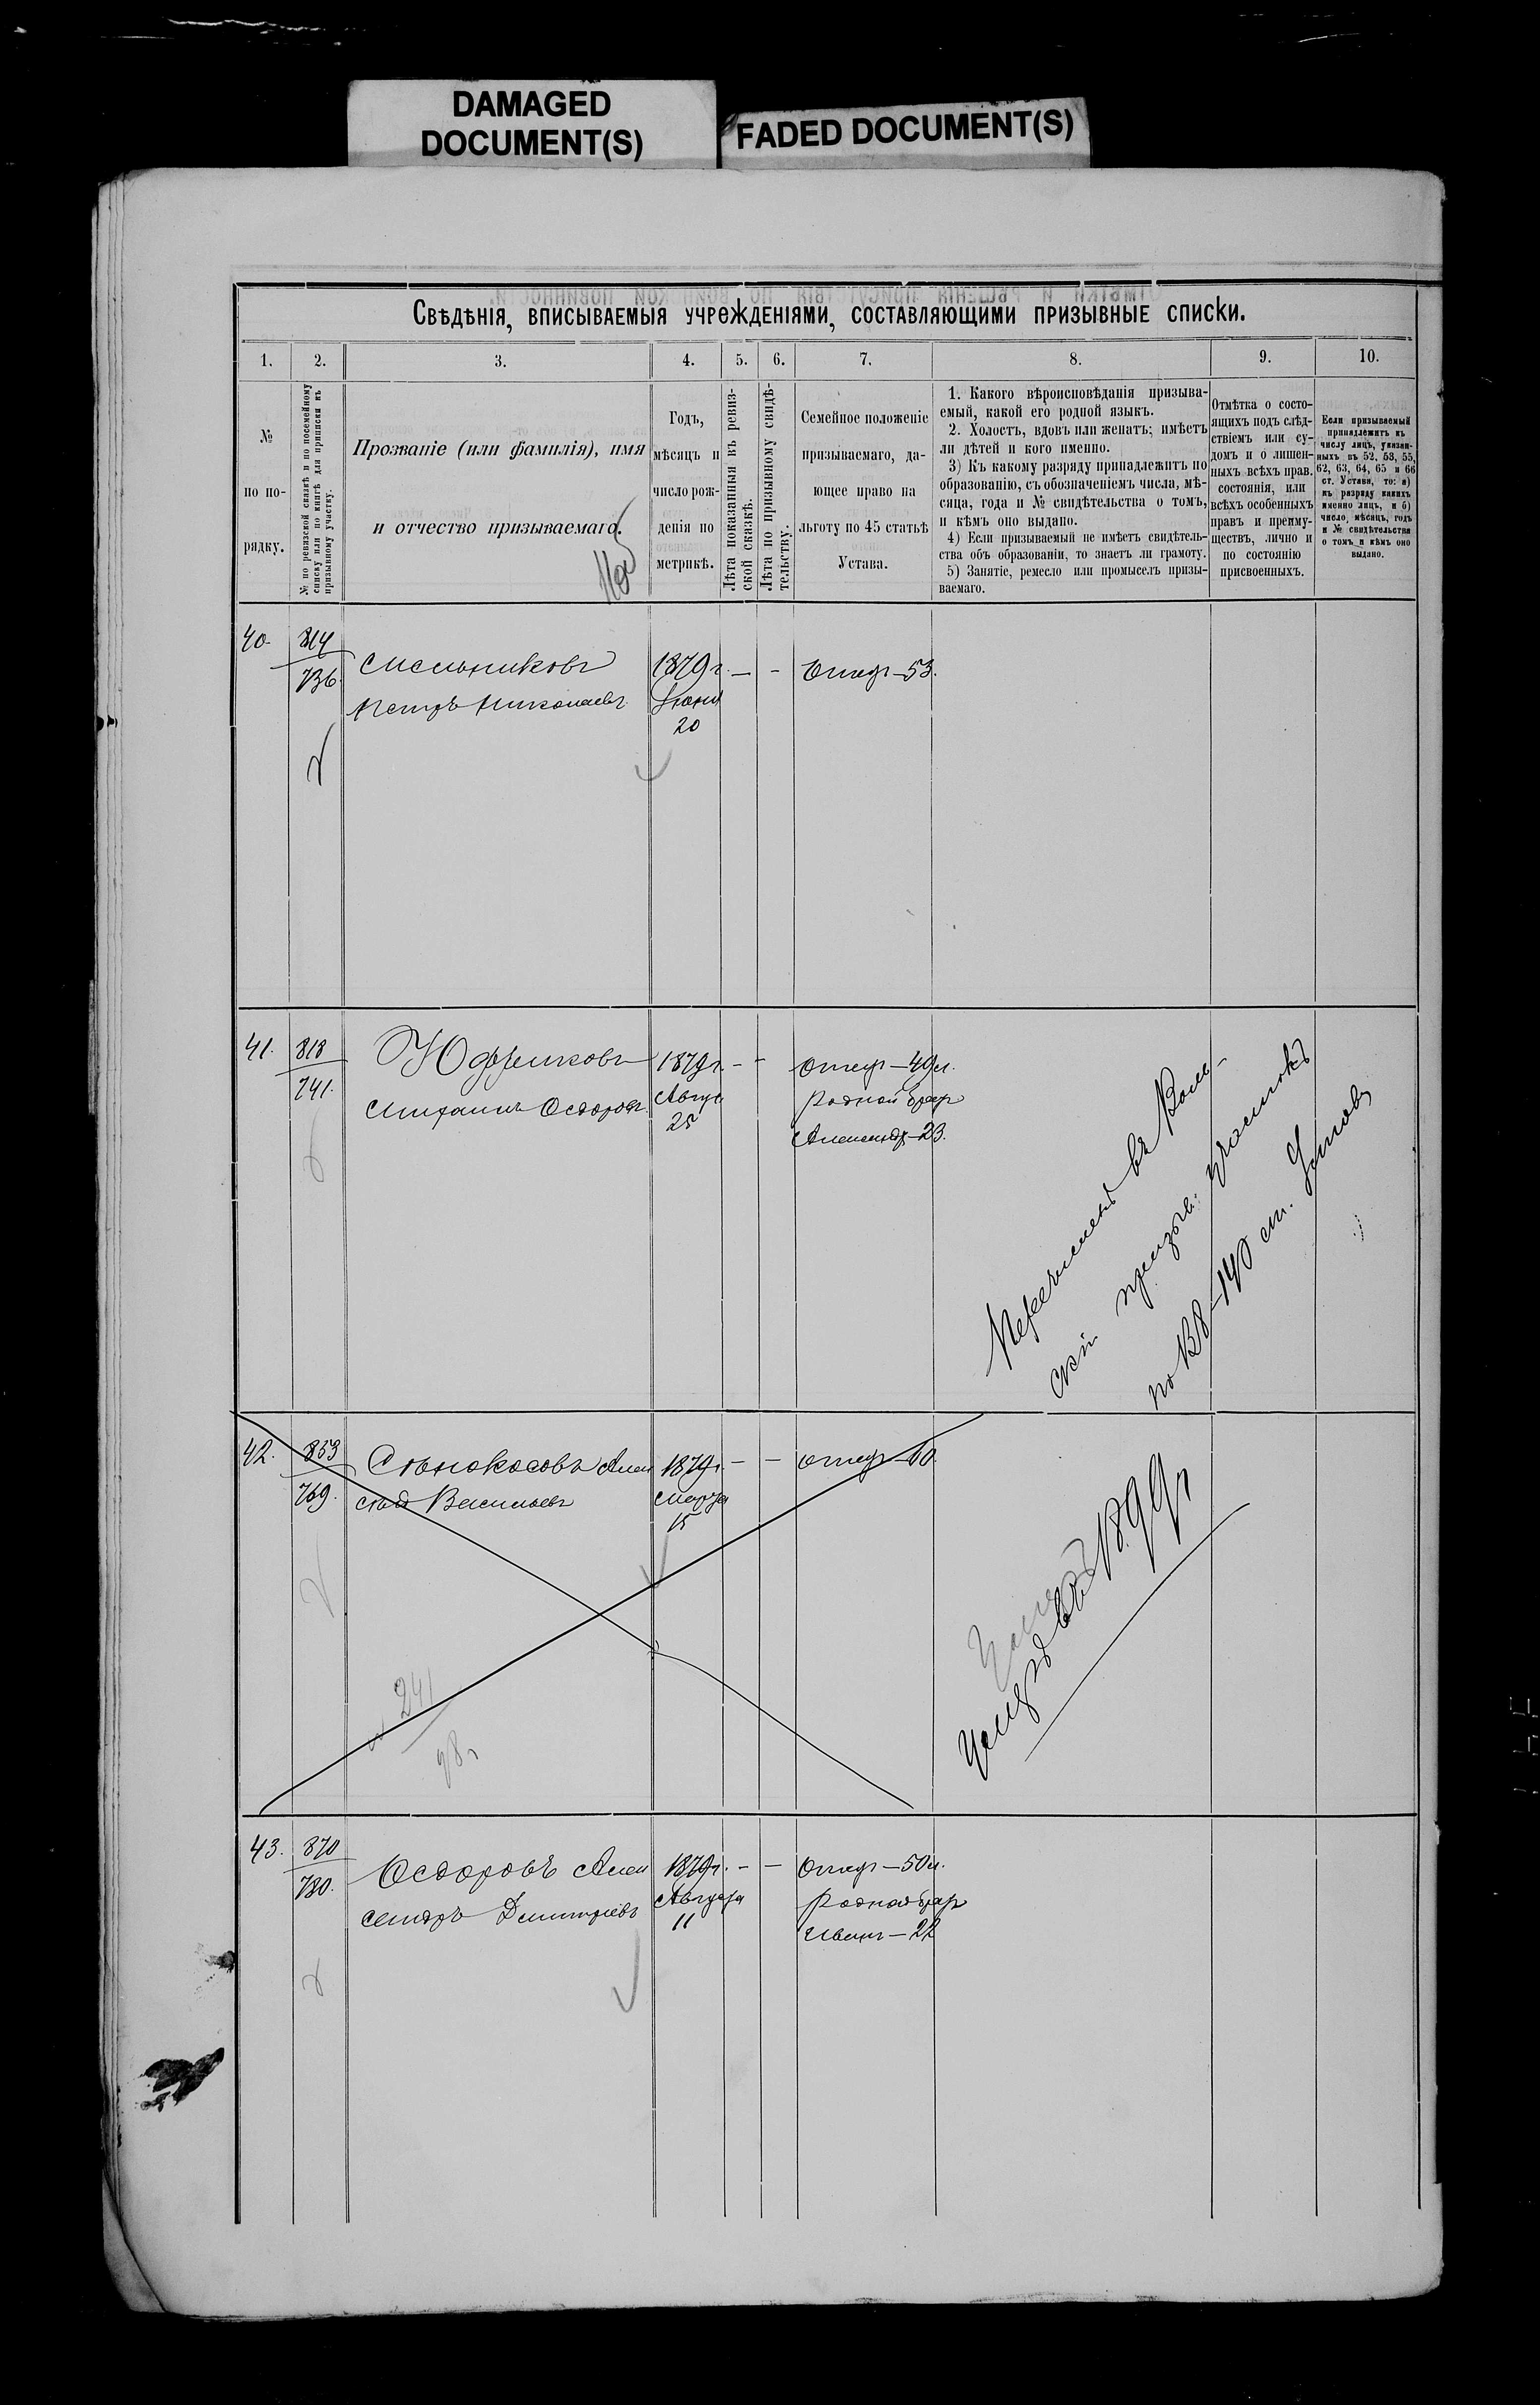 DAMAGED
DOCUMENT(S)
FADED DOCUMENT(S)
Свѣдѣнія, вписываемыя учрежденіями, составляющими призывные списки.
1.
2.
3.
4.
5.
6.
7.
8.
9.
10.
№
по по-
рядку.
№ по ревизской сказкѣ и по посемейному
списку или по книгѣ для приписки къ
призывному участку.
Прозваніе (или фамилія), имя
и отчество призываемаго.
Годъ,
мѣсяцъ и
число рож-
денія по
метрикѣ.
Лѣта показанныя въ ревиз-
ской сказкѣ.
Лѣта по призывному свидѣ-
тельству.
Семейное положеніе
призываемаго, да-
ющее право на
льготу по 45 статьѣ
Устава.
1. Какого вѣроисповѣданія призыва-
емый, какой его родной языкъ.
2. Холостъ, вдовъ или женатъ; имѣетъ
ли дѣтей и кого именно.
3) Къ какому разряду принадлежитъ по
образованію, съ обозначеніемъ числа, мѣ-
сяца, года и № свидѣтельства о томъ,
и кѣмъ оно выдано.
4) Если призываемый не имѣетъ свидѣтель-
ства объ образованіи, то знаетъ ли грамоту.
5) Занятіе, ремесло или промыселъ призы-
ваемаго.
Отмѣтка о состо-
ящихъ подъ слѣд-
ствіемъ или су-
домъ и о лишен-
ныхъ всѣхъ прав.
состоянія, или
всѣхъ особенныхъ
правъ и преиму-
ществъ, лично и
по состоянію
присвоенныхъ.
Если призываемый
принадлежитъ къ
числу лицъ, указан-
ныхъ въ 52, 53, 55,
62, 63, 64, 65 и 66
ст. Устава, то: а)
къ разряду какихъ
именно лицъ, и б)
число, мѣсяцъ, годъ
и № свидѣтельства
о томъ и кѣмъ оно
выдано.
40.
814
736.
Мельниковъ
Петръ Николаевъ
1879г.
Іюня
20
— -
Отецъ—53.
41.
818
741.
Михаилъ Ѳедоровъ
1879г.
Август
25
- -
Отецъ—49л.
Родной брат
Александр—23.
Перечисленъ въ Воль-
скій призыв. участокъ
по 138-140 ст. Устава
42.
853
769.
Сѣнокосовъ Алек
сѣй Васильевъ
1879г.
Марта
15
- —
Отецъ—60
241
98г
Умеръ въ 1899г
43.
870
780.
Ѳедоровъ Алек
сандръ Дмитріевъ
1879г.
Августа
11
- —
Отецъ—50л.
Родной брат
Иванъ—22